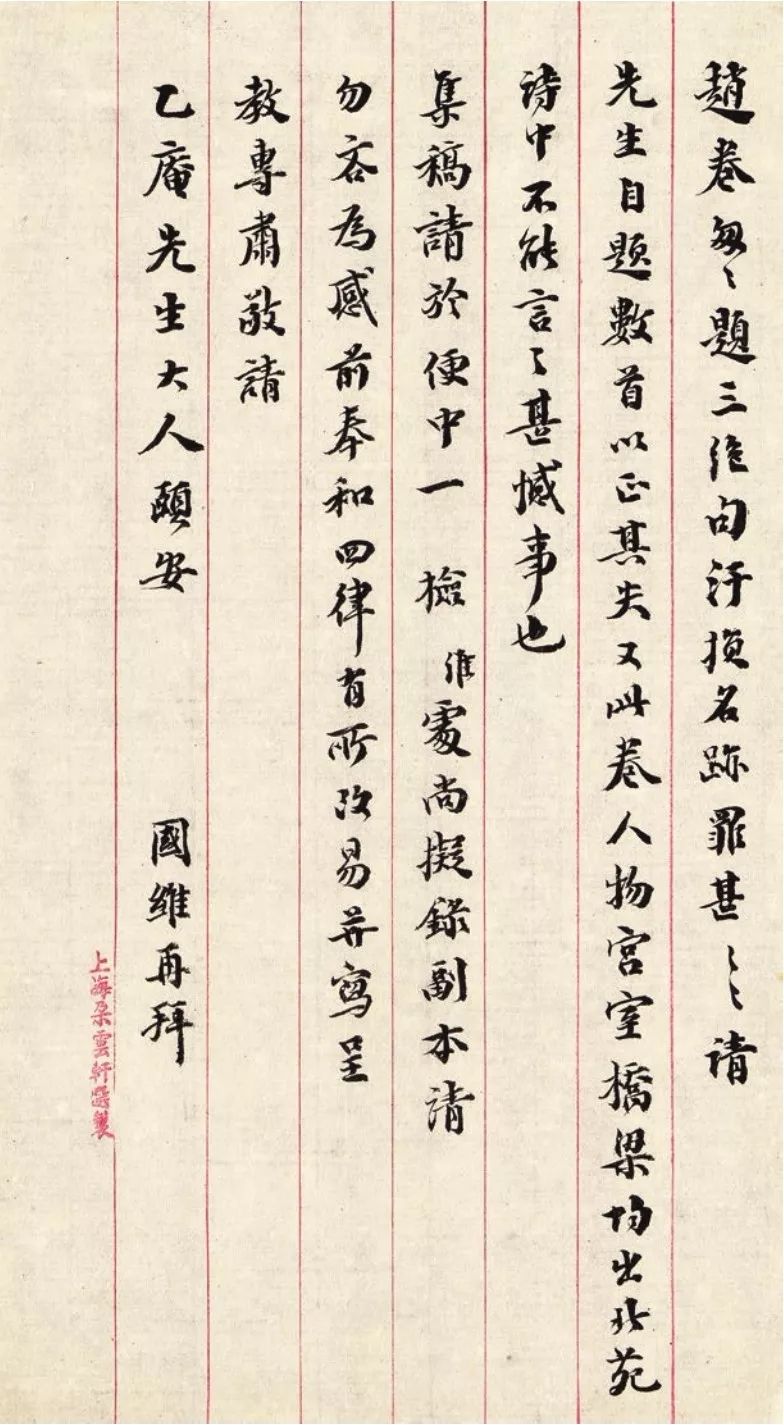 趙卷匆〻題三絕句汙損名跡罪甚〻〻請
先生自題數首以正其失又此卷人物宮室橋梁均出北苑
詩中不能言〻甚憾事也
集稿請於便中一 檢 維處尚擬錄副本請
勿吝為感前奉和四律有所改易并寫呈
教專肅敬請
乙庵先生大人頤安 國維再拜
上海朵雲軒選製